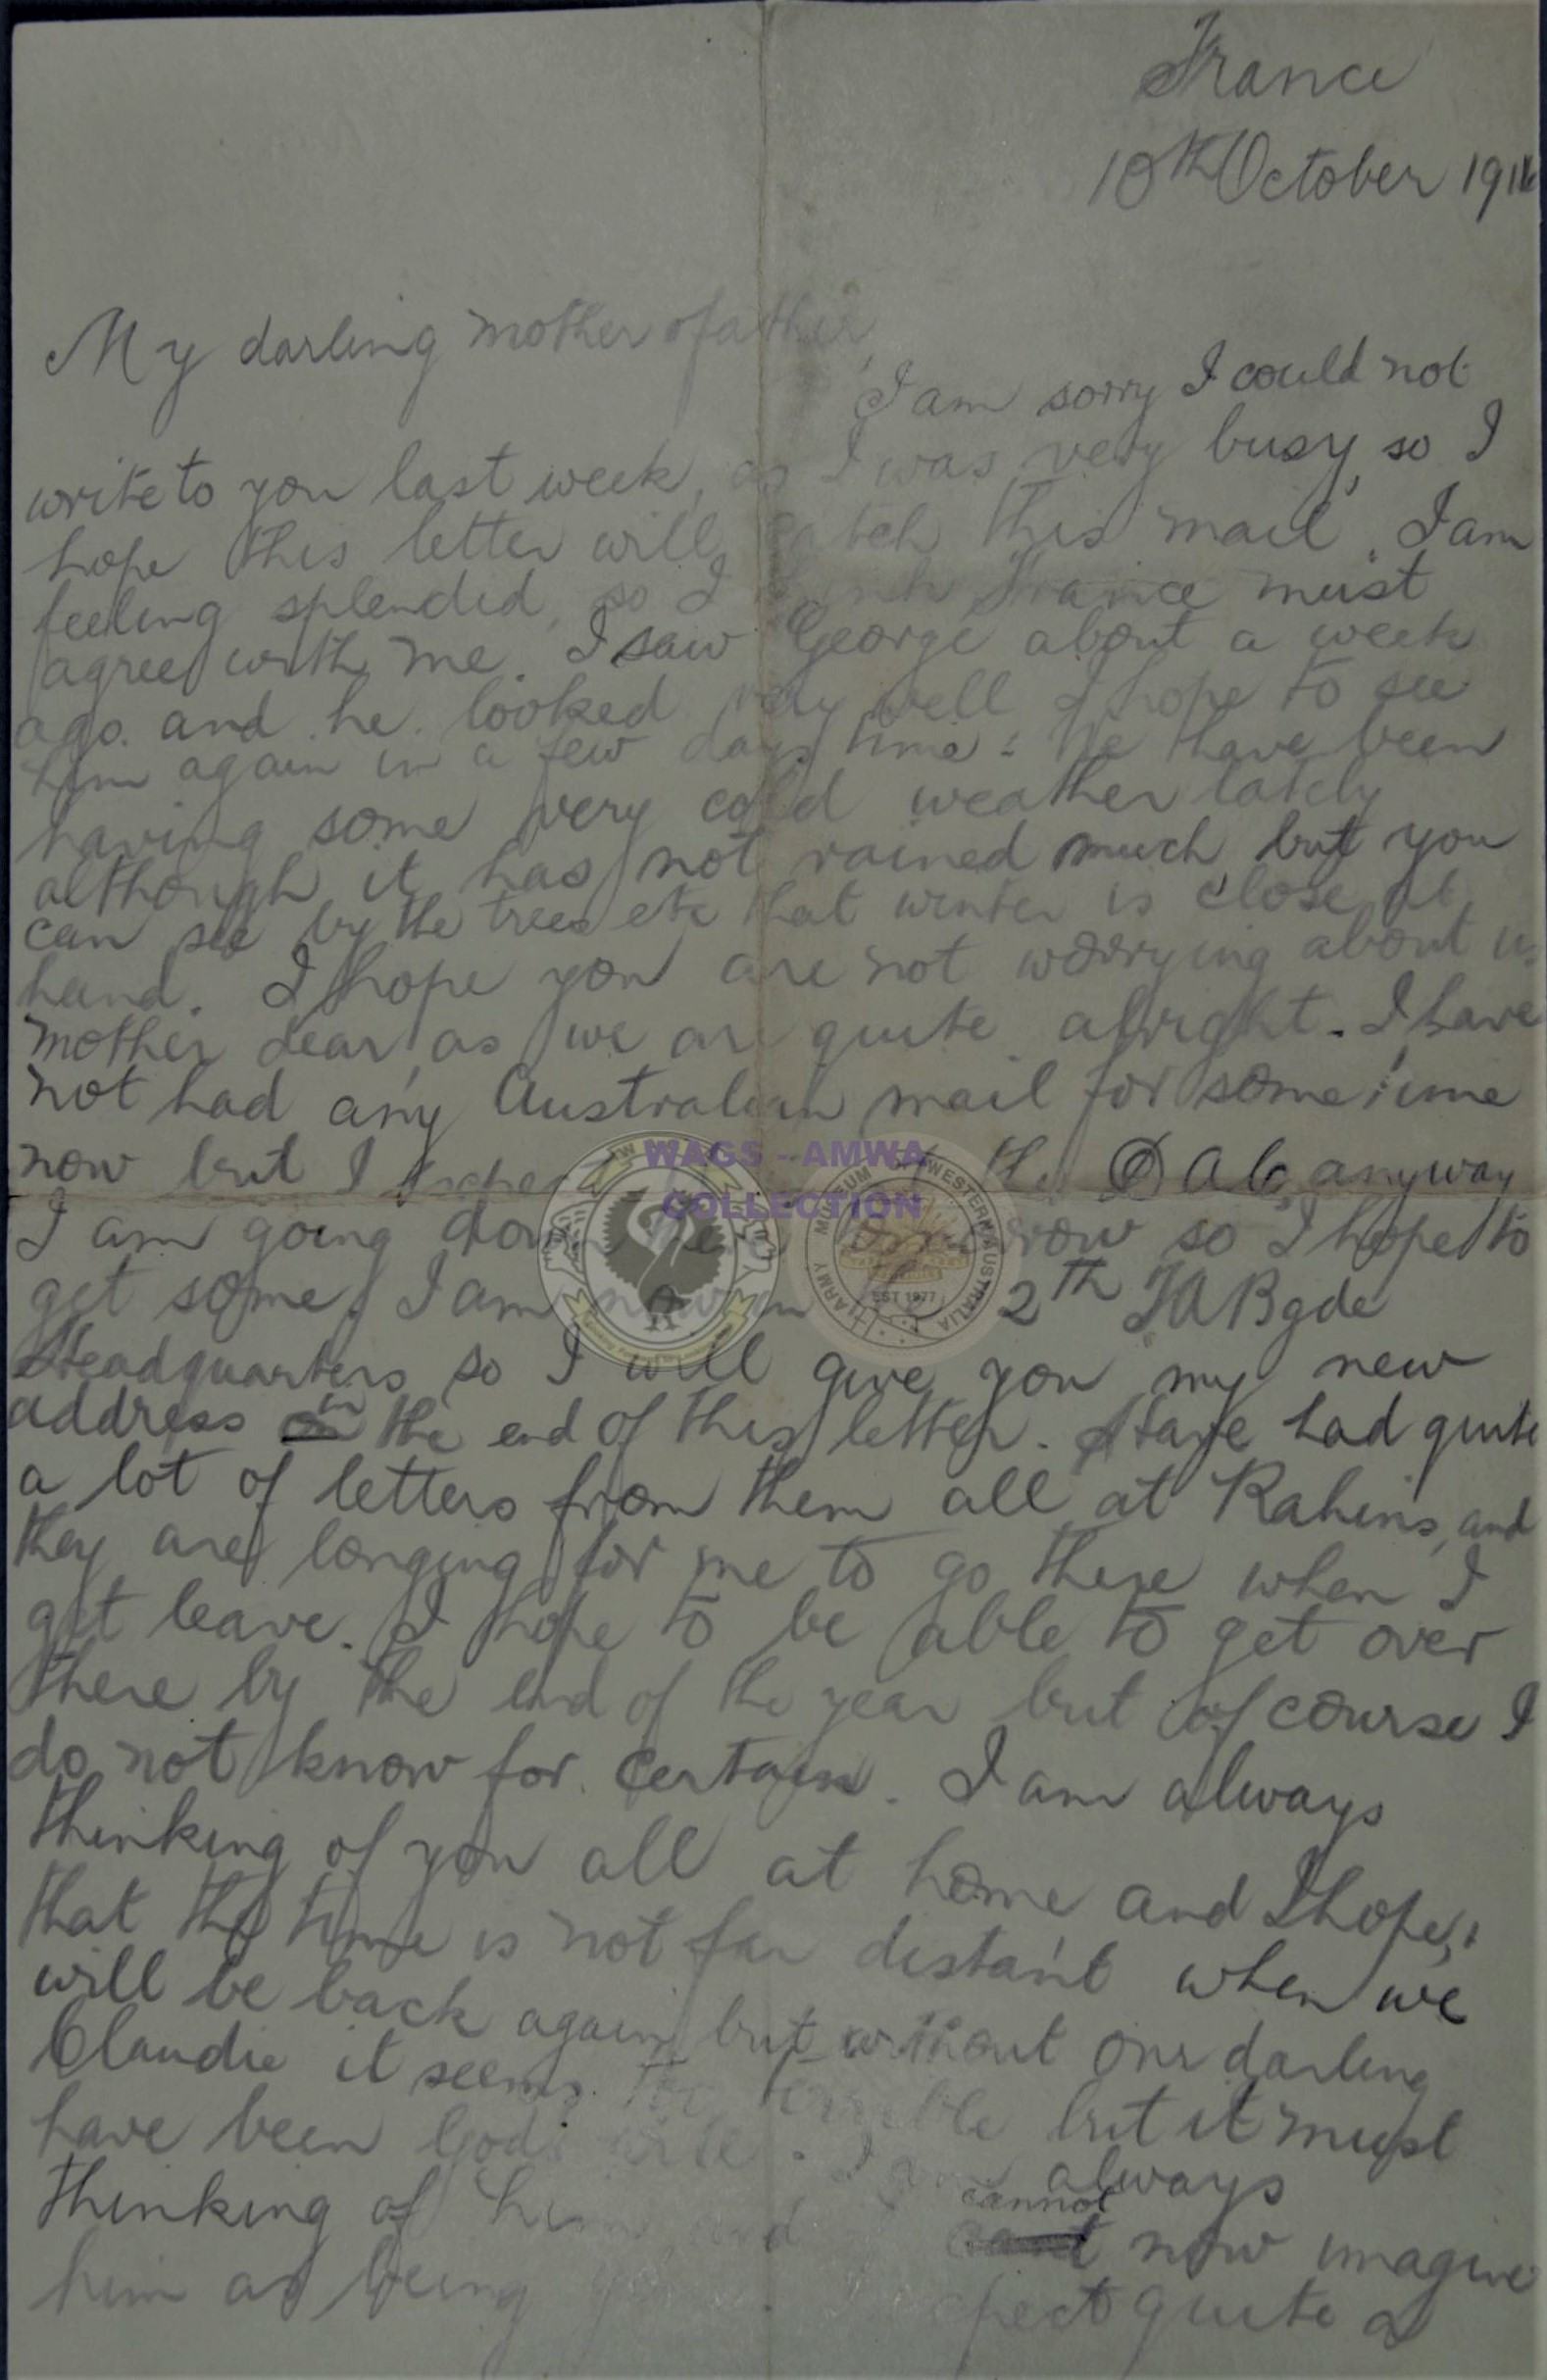 France
10th October 1916
My darling mother & father,
I am sorry I could not
write to you last week, as I was very busy, so I
hope this letter will catch this mail. I am
feeling splendid, so I think France must
agree with me. I saw George about a week
ago. and he looked very well I hope to see
him again in a few days time. We have been
having some very cold weather lately
although it has not rained much but you
can see by the trees etc that winter is close at
hand. I hope you are not worrying about us
mother dear, as we are quite alright. I have
not had any Australian mail for sometime
now but I the DAC, anyway
I am going down there tomorrow so I hope to
get some. I am now in 2th FA Bgde
Headquarters so I will give you my new
address in the end of this letter. Have had quite
a lot of letters from them all at Rahins, and
they are longing for me to go there when I
get leave. I hope to be able to get over
there by the end of the year but of course I
do not know for certain. I am always
thinking of you all at home and I hope,
that the time is not far distant when we
will be back again, but without our darling
Claudie it seems too terrible but it must
have been Gods will. I am always
thinking of him and cannot now imagine
him as being quite a
WAGS - AMWA
COLLECTION
ARMY MUSEUM OF WESTERN AUSTRALIA
EST 1977